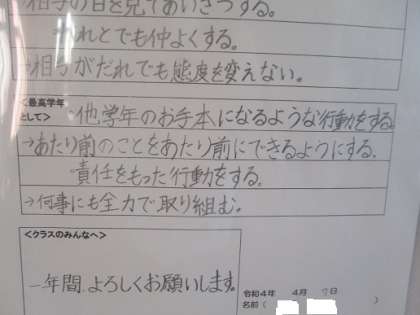 →相手の目を見てあいさつする。
・だれとでも仲よくする。
→相手がだれでも態度を変えない。
<最高学年として>
・他学年のお手本になるような行動をする。
→あたり前のことをあたり前にできるようにする.
・責任をもった行動をする.
→何事にも全力で取り組む。
<クラスのみんなへ>
一年間.よろしくお願いします。
令和4年 4月 7日
名前( )